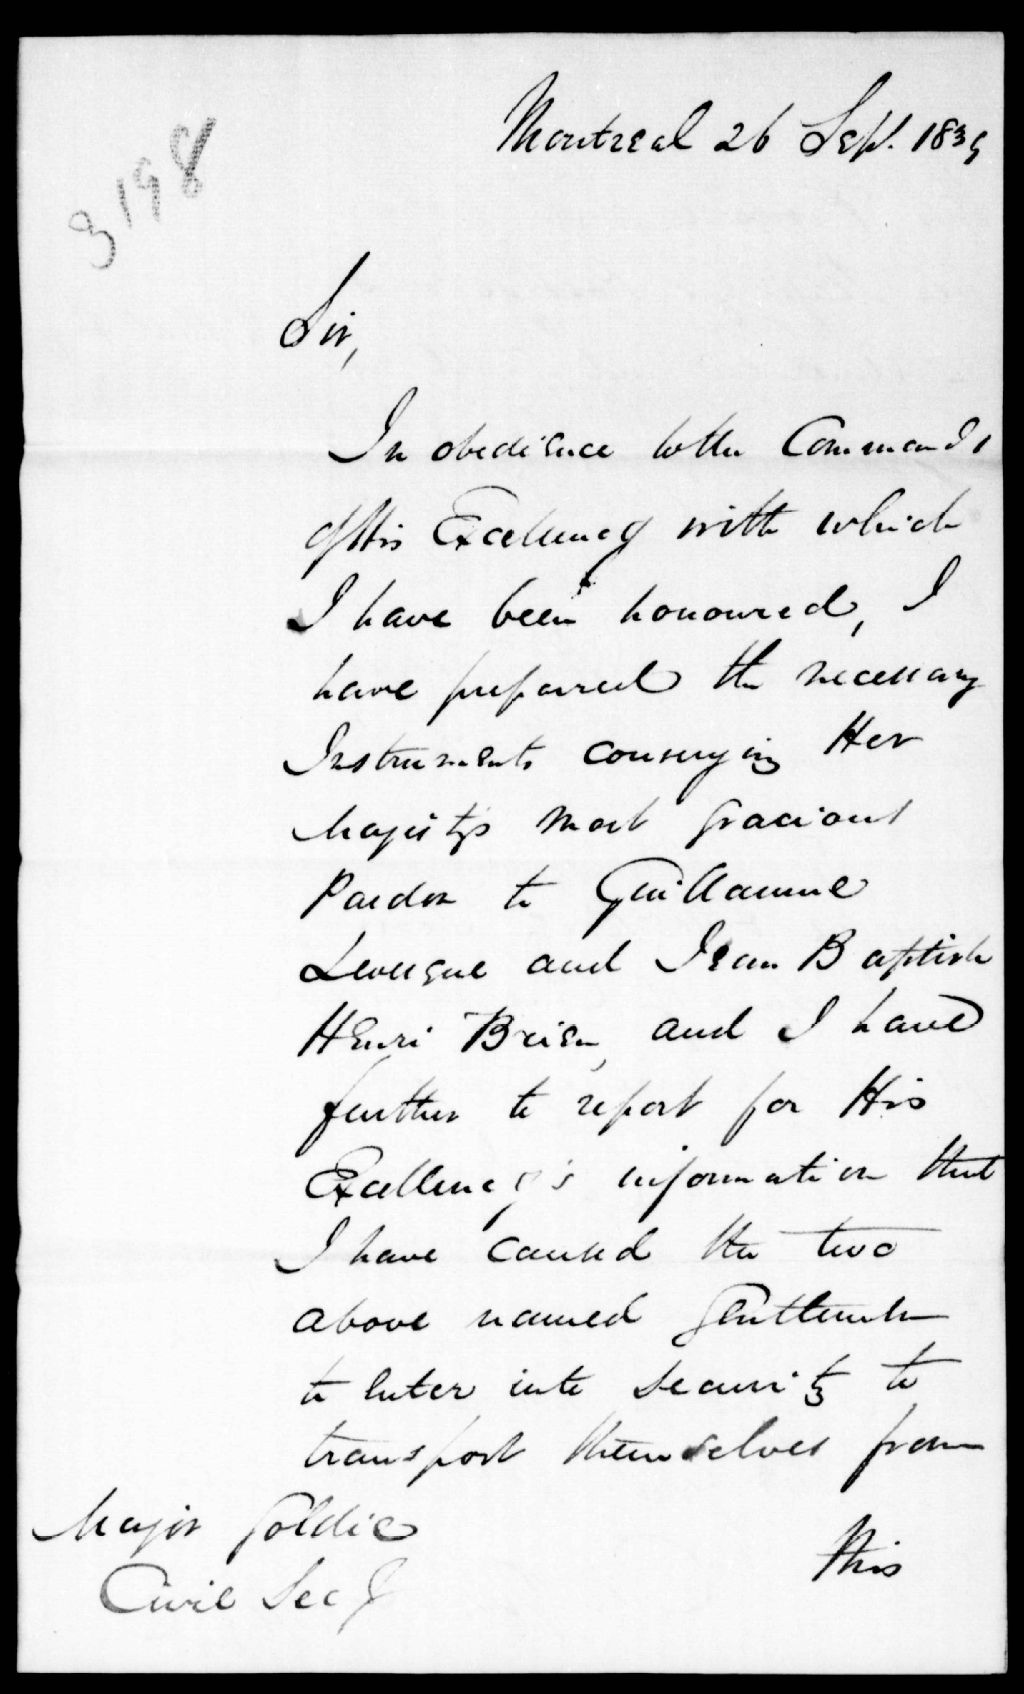 Montreal 26 Sept. 1839
3198
Sir,
In obedience to the Commands
of His Excellency with which
I have been honoured, I
have prepared the necessary
Instruments conveying Her
Majesty's most gracious
Pardon to Guillaume
Levesque and Jean Baptiste
Henri Brien, and I have
further to report for His
Excellency's information that
I have caused the two
above named Gentlemen
to enter into security to
transport themselves from
this
Major Goldie
Civil Secy